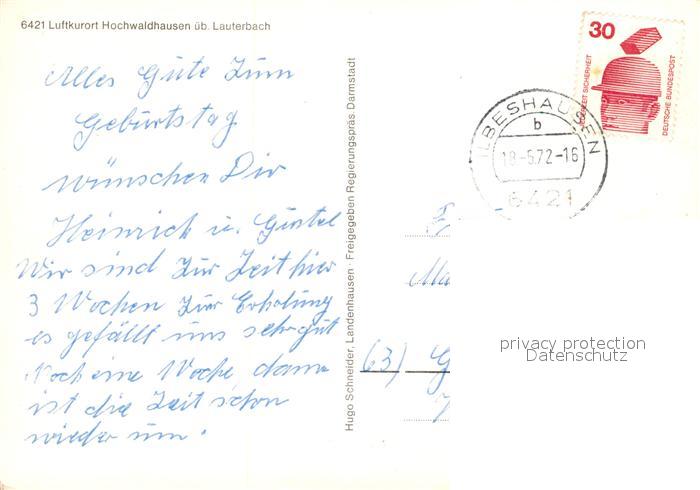 6421 Luftkurort Hochwaldhausen üb. Lauterbach
Alles Gute zum
Geburtstag
wünschen Dir
Heinrich u.
Wir sind zur Zeit hier
3 Wochen zur Erholung
es gefällt uns sehr gut
Noch eine Woche, dann
ist die Zeit schon
wieder um.
Hugo Schneider, Landenhausen · Freigegeben Regierungspräs. Darmstadt
30
JEDERZEIT SICHERHEIT
DEUTSCHE BUNDESPOST
ILBESHAUSEN
b
18-5.72-16
6421
Ma
(63) G
privacy protection
Datenschutz